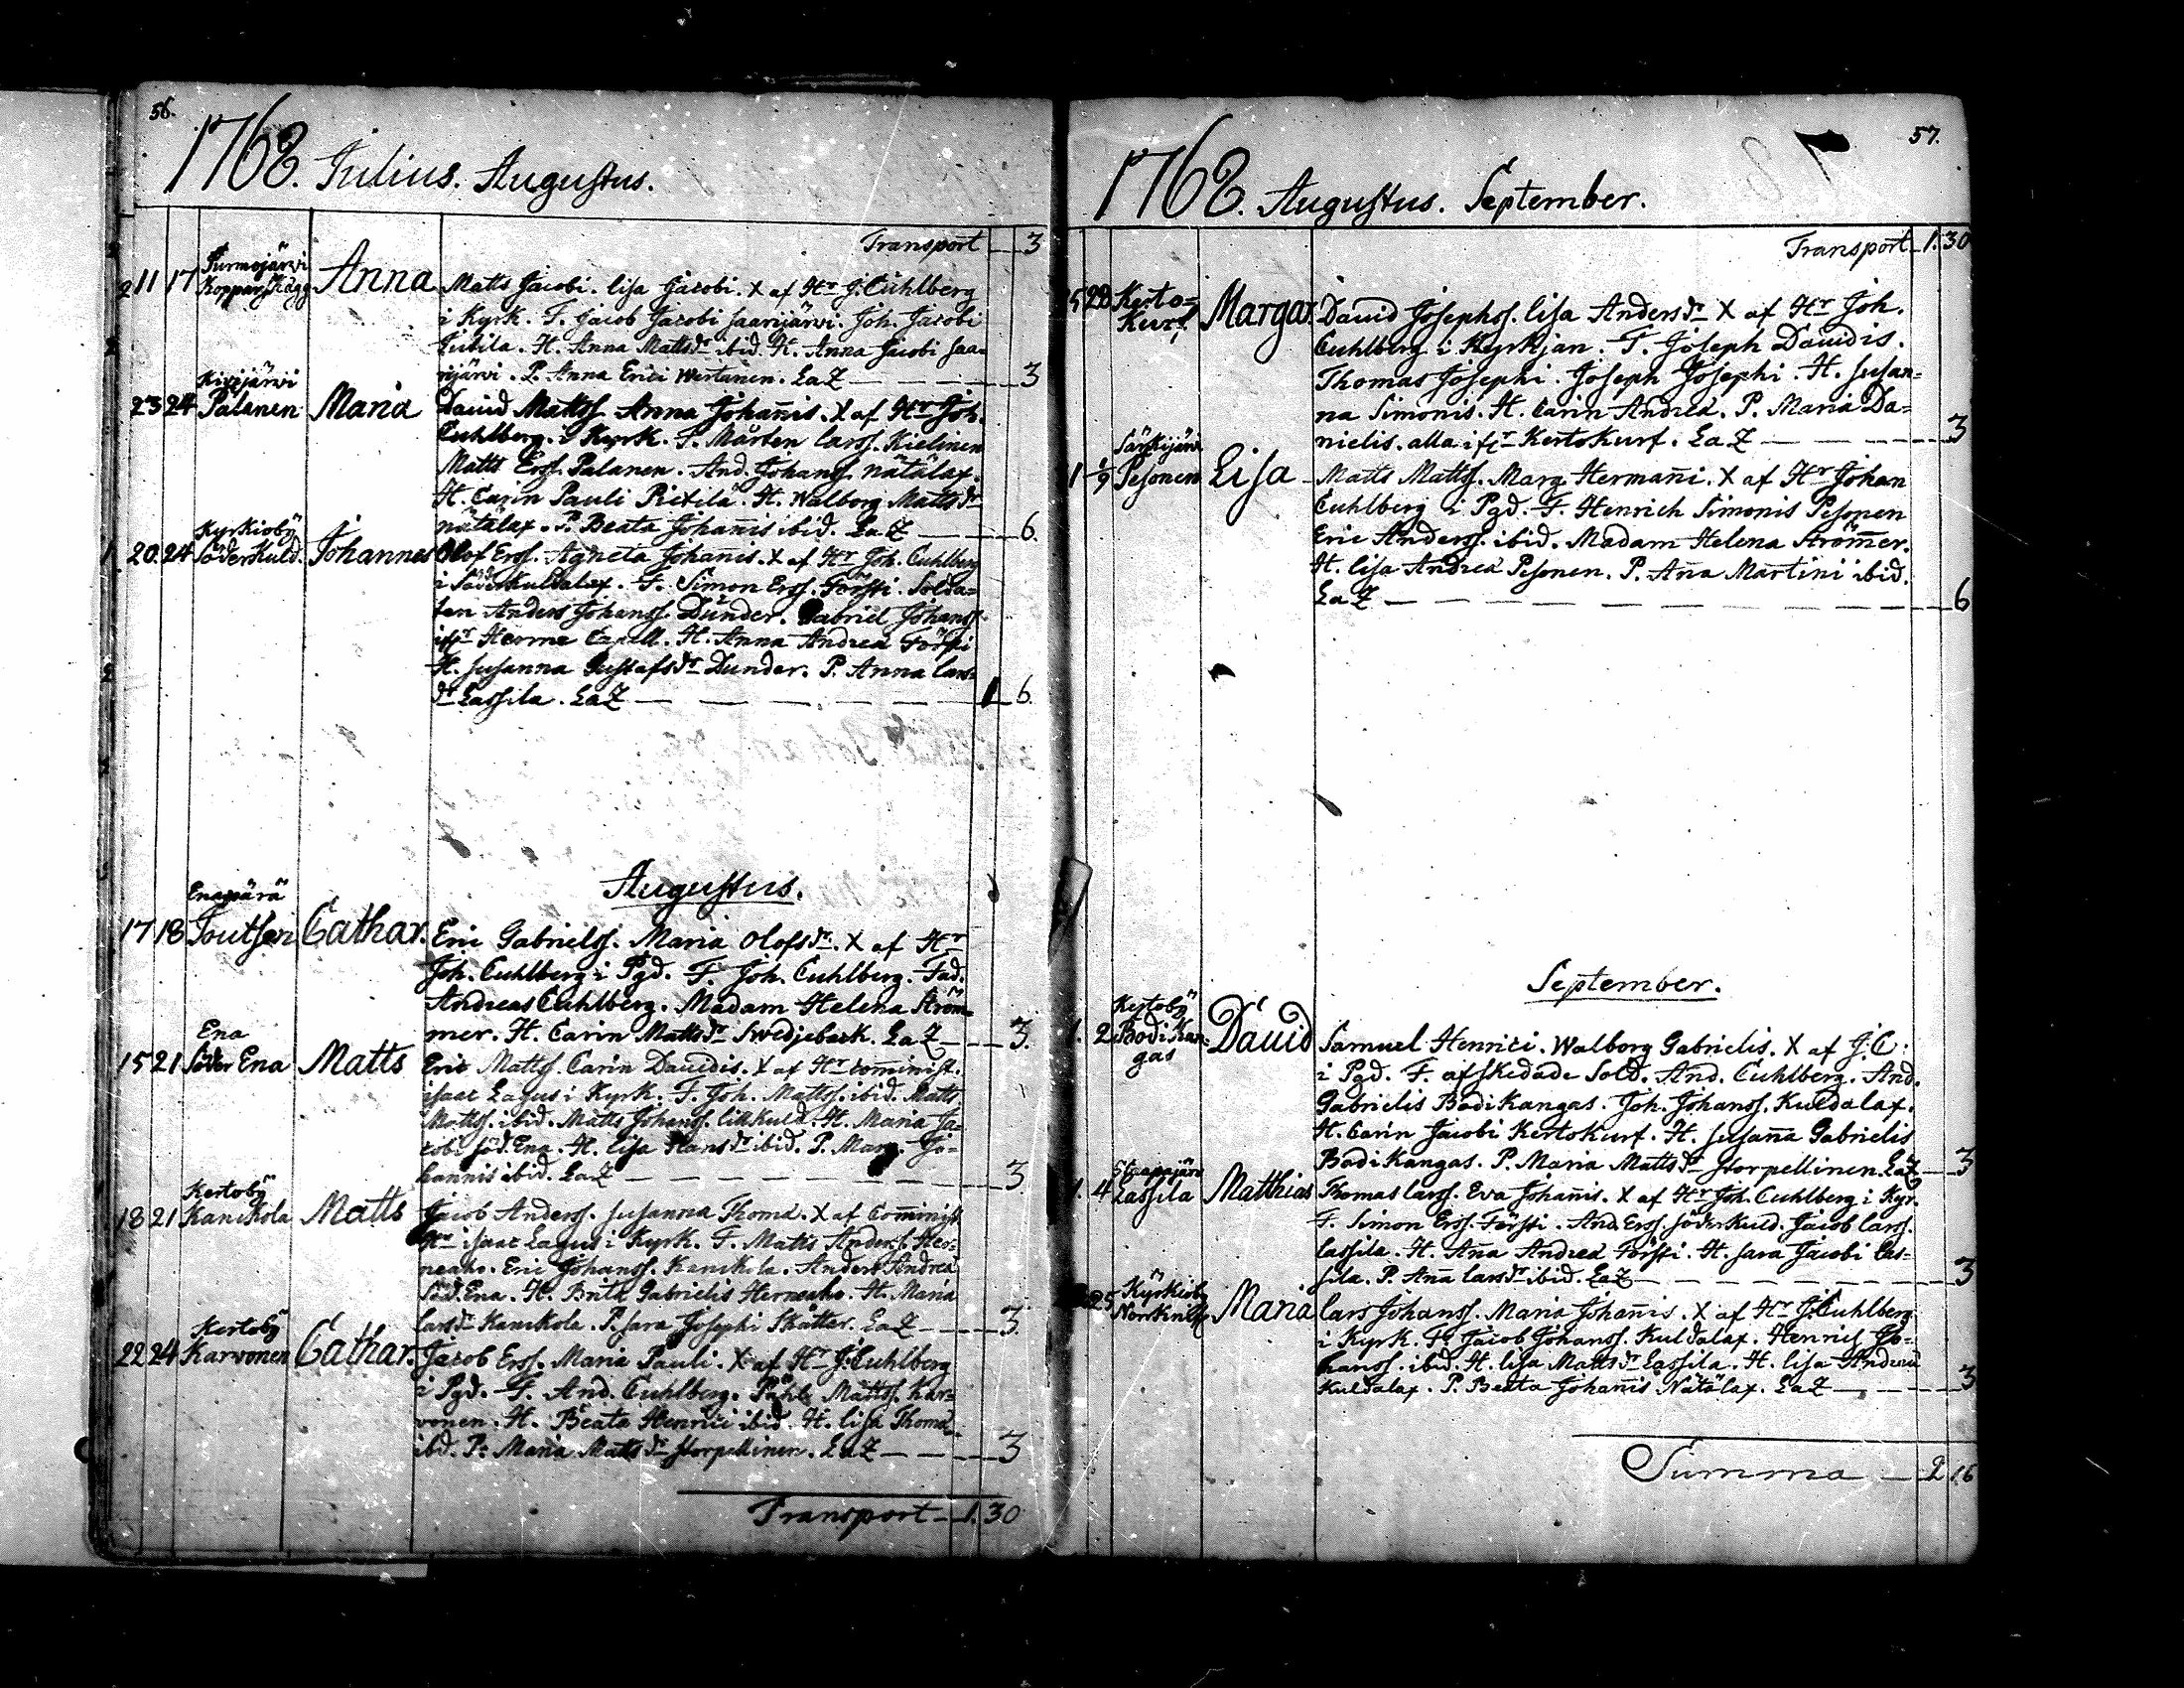 56.
1768. Julius. Augustus.
Transport 3
Purmojärvi
11 17 Kopparskägg Anna Matts Jacobi. Lisa Jacobi. X af Hr J. Cuhlberg
i Kyrk. F. Jacob Jacobi Saarijärvi. Joh. Jacobi
ibid. K. Anna Jacobi Saa=
rijärvi. P. Anna Erici Wertanen. LaZ 3
Kivijärvi
23 24 Palanen Maria David Mattss. Anna Johan̄is. X af Hr Joh.
Cuhlberg. i Kyrk. F. Mårten Larss. Kielinen
Matts Erss. Palanen. And. Johanss. Nätälax.
H. Carin Pauli Pietilä. H. Walborg Mattsdr
Nätälax. P. Beata Johan̄is ibid. LaZ 6.
Kyrkioby
20. 24 Söderkuld. Johannes Olof Erss. Agneta Johanis. X af Hr Joh. Cuhlberg
i Söderkuldalax. F. Simon Erss. Förssti. Solda=
ten Anders Johanss. Dunder. Gabriel Johanss.
Capell. H. Anna Andreæ Försti
H. Susanna Gustafsdr Dunder. P. Anna Lars=
dr Lassila. LaZ 1 6.
Augustus.
Enäperä
17 18 Joutsen Cathar. Eric Gabrielss. Maria Olofsdr. X af Hr
Joh. Cuhlberg i Pgd. F. Joh. Cuhlberg. Fad.
Andreas Cuhlberg. Madam Helena Ström=
mer. H. Carin Mattsdr Swedjeback. LaZ 3.
Ena
15 21 Söder Ena Matts Eric Mattss. Carin Davidis. X af Hr Com̄inist.
Isaac Lagus i Kyrk. F. Joh. Mattss. ibid. Matts
Mattss. ibid. Matts Johanss. Lillkuld. H. Maria Ja=
cobi Söd. Ena. H. Lisa Hansdr ibid. P. Marg. Jo=
hannis ibid. LaZ 3.
Kertoby
18 21 Kanckola Matts Jacob Anderss. Susanna Thomæ. X af Com̄inist.
Hr Isaac Lagus i Kyrk. F. Matts Anderss. Her=
neaho. Eric Johanss. Kanckola. Anders Andreæ
Söd. Ena. H. Brita Gabrielis Herneaho. H. Maria
Larsdr Kanckola. P. Sara Josephi Skåttar. LaZ 3.
Kertoby
22 24 Karvonen Cathar. Jacob Erss. Maria Pauli. X af Hr J. Cuhlberg
i Pgd. F. And. Cuhlberg. Påhl Mattss. Kar=
vonen. H. Beata Henrici ibid. H. Lisa Thomæ
ibd. P. Maria Mattsdr Storpellinen. LaZ 3
Transport 1. 30
57.
1768. Augustus. September.
Transport 1. 30
28 Kerto=
Kurf. Margar. David Josephss. Lisa Andersdr X af Hr Joh.
Cuhlberg i Kyrkjan. F. Joseph Davidis.
Thomas Josephi. Joseph Josephi. H. Susan=
na Simonis. H. Carin Andreæ. P. Maria Da=
nielis. alla ifr Kertokurf. LaZ 3
Särkijärvi
1 1/9 Pesonen Lisa Matts Mattss. Marg Herman̄i. X af Hr Johan
Cuhlberg i Pgd. F. Henrich Simonis Pesonen
Eric Anderss. ibid. Madam Helena Ström̄er.
H. Lisa Andreæ Pesonen. P. An̄a Martini ibid.
LaZ 6
September.
Kertoby
1. 2 Bodikan=
gas David Samuel Henrici. Walborg Gabrielis. X af J. C:
i Pgd. F. afskedade Sold. And. Cuhlberg. And.
Gabrielis Bodikangas. Joh. Johanss. Kuldalax.
H. Carin Jacobi Kertokurf. H. Susan̄a Gabrielis
Bodikangas. P. Maria Mattsdr Storpellinen. LaZ 3
Staapajärvi
1. 4 Lassila Matthias Thomas Larss. Eva Johan̄is. X af Hr Joh. Cuhlberg i Kyr.
F. Simon Erss. Försti. And. Erss. Söderkuld. Jacob Larss.
Lassila. H. An̄a Andreæ Försti. H. Sara Jacobi Las=
sila. P. An̄a Larsdr ibid. LaZ 3
Kyrkioby
25 Maria Lars Johanss. Maria Johan̄is. X af Hr J. Cuhlberg
i Kyrk. F. Jacob Johanss. Kuldalax. Henric Jo=
hanss. ibid. H. Lisa Mattsdr Lassila. H. Lisa Andreæ
Kuldalax. P. Beata Johan̄is Nätälax. LaZ 3
Summa 2 16